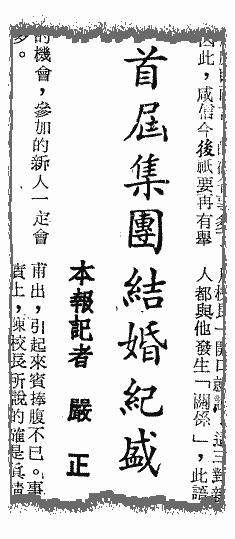 首屆集團結婚紀盛
本報記者 嚴 正
因此，咸信今後祇要再有舉
的機會，參加的新人一定會
多。
校長一開口這三對新
人都與他發生「關係」，此語
甫出，引起來賓捧腹不已。事
實上，陳校長所說的確是真情